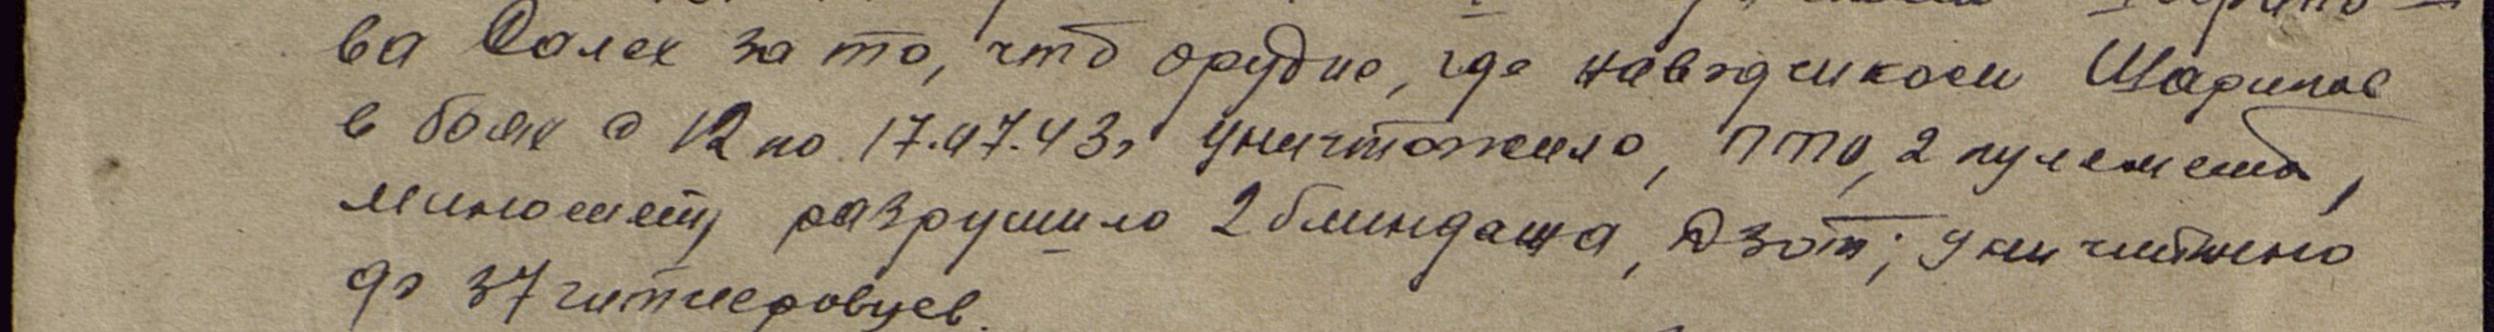 ва Салех за то, что орудие, где наводчиком Шарипов
в боях с 12 по 17.07.43г уничтожило, ПТО, 2 пулемета,
миномет, разрушило 2 блиндажа, Дзот; уничтожено
до 37 гитлеровцев.